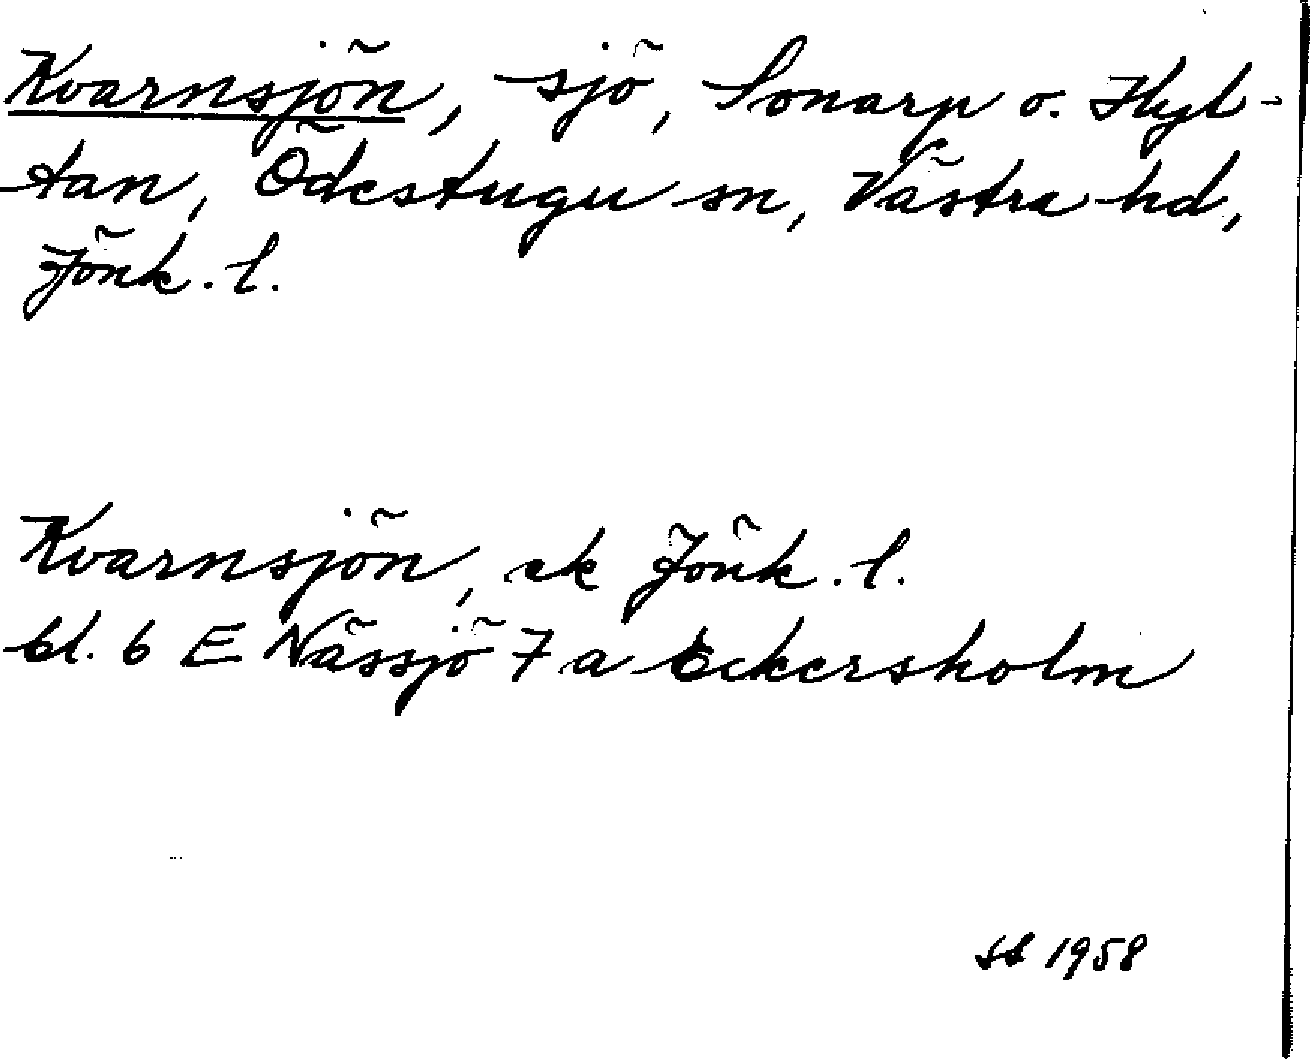 Kvarnsjön, sjö, Sonarp o. Hyl-
tan, Ödestugu sn, Västra hd,
Jönk. l.
Kvarnsjön, ek Jönk. l.
bl. 6 E Nässjö 7 a Eckersholm
SS 1958